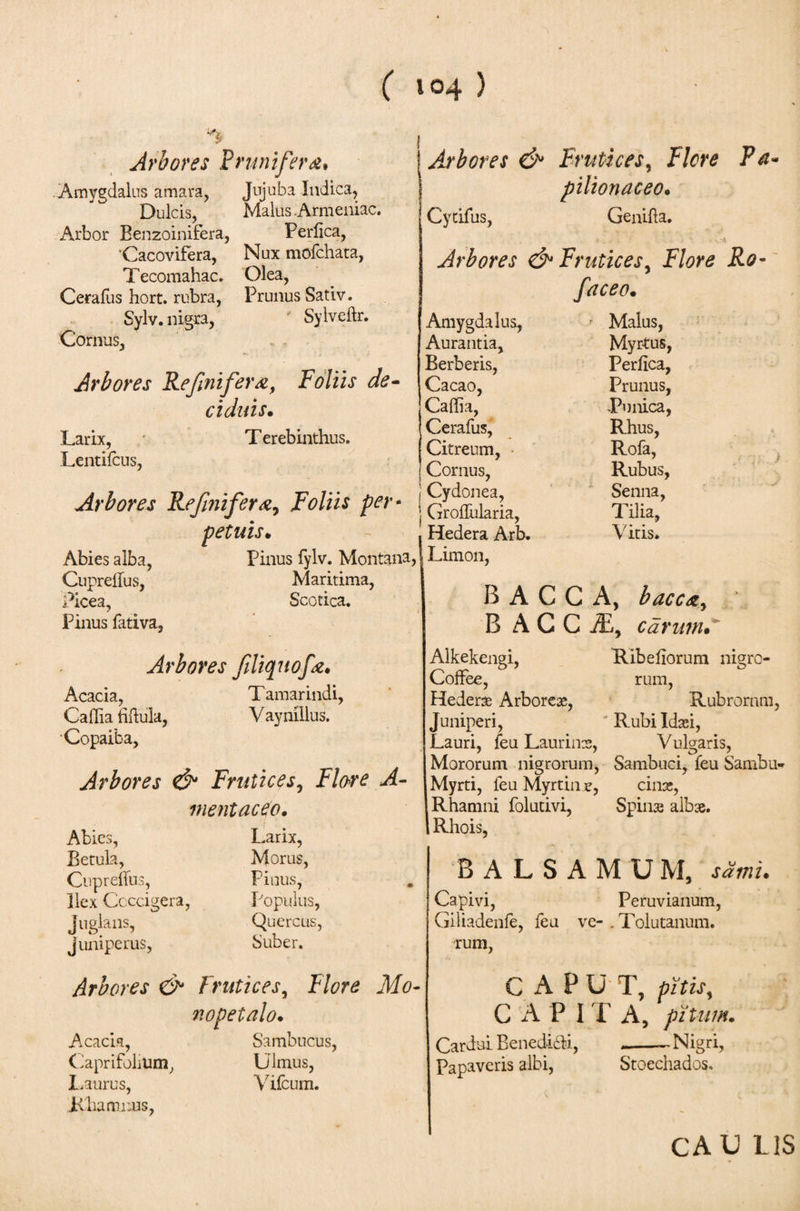 ( 104 )
Arbores Pruniferæ.
Amygdalus amara,
Dulcis,
Arbor Benzoinifera,
Cacovifera,
Tecomahac.
Ceraſus hort. rubra,
Sylv. nigra,
Cornus,
Jujuba Indica,
Malus Armeniac.
Perſica,
Nux moſchata,
Olea,
Prunus Sativ.
Sylveſtr.
Arbores Reſiniferæ, Foliis de-
ciduis.
Larix,
Lentiſcus,
Terebinthus.
Arbores Reſiniferæ, Foliis per-
petuis.
Abies alba,
Cupreſſus,
Picea,
Pinus ſativa,
Pinus ſylv. Montana,
Maritima,
Scotica.
Arbores ſiliquoſæ.
Acacia,
Caſſia fiſtula,
Copaiba,
Tamarindi,
Vaynillus.
Arbores & Frutices, Flore A-
mentaceo.
Abies,
Betula,
Cupreſſus,
Ilex Coccigera,
Juglans,
Juniperus,
Larix,
Morus,
Pinus,
Populus,
Quercus,
Suber.
Arbores & Frutices, Flore Mo-
nopetalo.
Acacia,
Caprifolium,
Laurus,
Rhamnus,
Sambucus,
Ulmus,
Viſcum.
Arbores & Frutices, Flore Pa-
pilionaceo.
Cytiſus,
Geniſta.
Arbores & Frutices, Flore Ro-
ſaceo.
Amygdalus,
Aurantia,
Berberis,
Cacao,
Caſſia,
Ceraſus,
Citreum,
Cornus,
Cydonea,
Groſſularia,
Hedera Arb.
Limon,
Malus,
Myrtus,
Perſica,
Prunus,
Punica,
Rhus,
Roſa,
Rubus,
Senna,
Tilia,
Vitis.
BACCA, baccæ,
BACCÆ, cārum.
Alkekengi,
Coffee,
Hederæ Arboreæ,
Juniperi,
Lauri, ſeu Laurinæ,
Mororum nigrorum,
Myrti, ſeu Myrtinæ,
Rhamni ſolutivi,
Rhois,
Ribeſiorum nigro-
rum,
Rubrorum,
Rubi Idæi,
Vulgaris,
Sambuci, ſeu Sambu-
cinæ,
Spinæ albæ.
BALSAMUM, sămi.
Capivi,
Giliadenſe, ſeu ve-
rum,
Peruvianum,
Tolutanum.
CAPUT, pĭtis,
CAPITA, pĭtum.
Cardui Benedicti,
Papaveris albi,
——Nigri,
Stoechados.
CAULIS